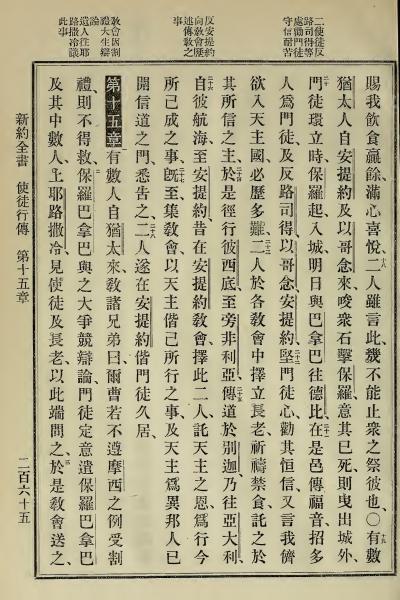 二使徒反
路司得等
處勸門徒
守信耐苦
反安提約
向敎會歷
述傳敎之
事
敎會因割
禮大生辯
論
遣人往耶
路撒冷議
此事
賜我飲食贏餘、滿心喜悅、十八二人雖言此、幾不能止衆之祭彼也、〇十九有數
猶太人自安提約及以哥念來、唆衆石擊保羅、意其已死、則曳出城外、
二十門徒環立時、保羅起入城、明日與巴拿巴往德比、二十一在是邑傳福音、招多
人爲門徒、及反路司得以哥念安提約、二十二堅門徒心、勸其恒信、又言我儕
欲入天主國、必歷多難、二十三二人於各敎會中、擇立長老、祈禱禁食、託之於
其所信之主、二十四於是徑行彼西底、至旁非利亞、二十五傳道於別迦、乃往亞大利、
二十六自彼航海至安提約、昔在安提約敎會擇此二人、託天主之恩、爲行今
所已成之事、二十七旣至、集敎會、以天主偕己所行之事、及天主爲異邦人已
開信道之門、悉告之、二十八二人遂在安提約、偕門徒久居、
第十五章 有數人自猶太來、敎諸兄弟曰、爾曹若不遵摩西之例受割
禮、則不得救、二保羅巴拿巴與之大爭競辯論、門徒定意、遣保羅巴拿巴
及其中數人、上耶路撒冷、見使徒及長老、以此端問之、三於是敎會送之、
新約全書　使徒行傳　第十五章　二百六十五